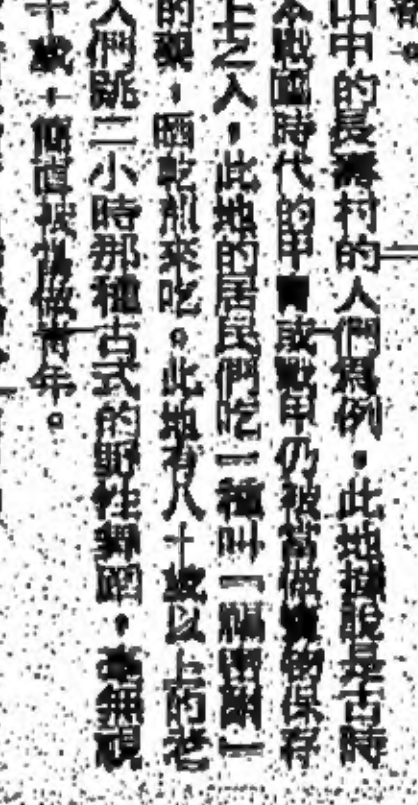 山中的長壽村的人們爲例，此地據說是古時
戰國時代的甲冑或戰甲仍被當做寶物保存
士之入，此地的居民們吃一種叫『
的糞，晒乾削來吃。此地有八十歲以上的老
人們跳二小時那種古式的野性舞蹈，毫無視
十歲，簡直被當做青年。